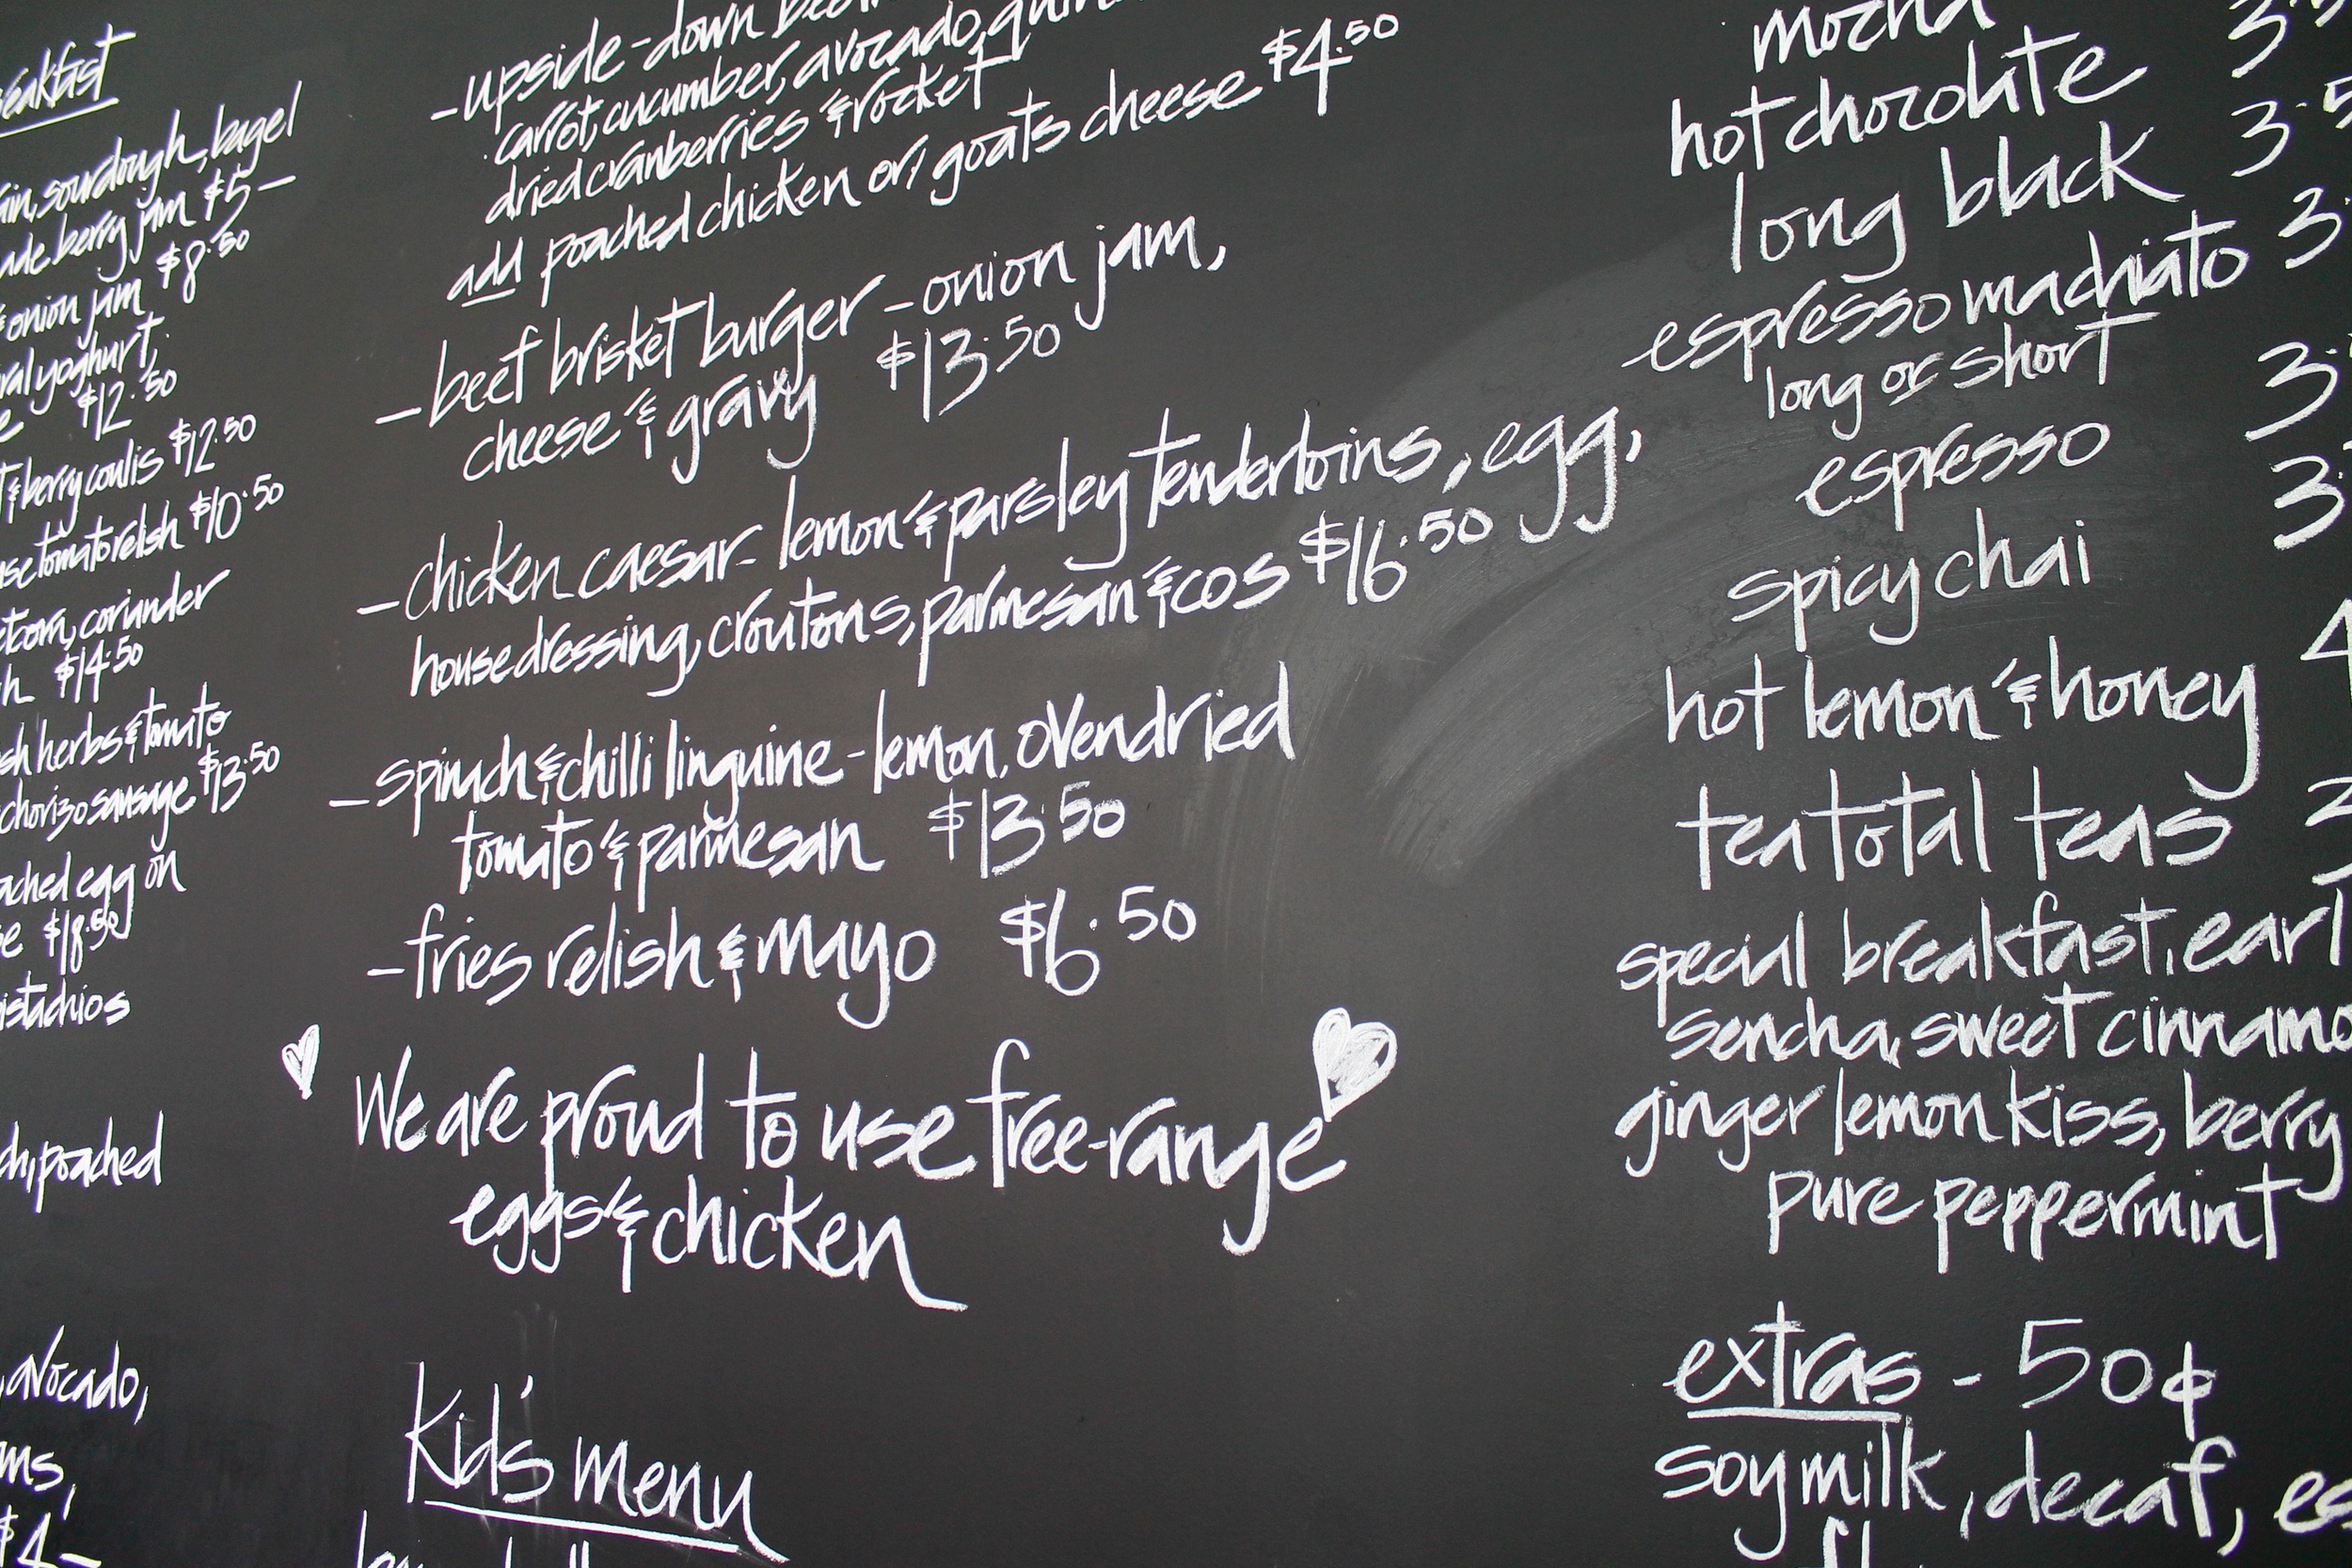 sourdough, bagel
berry jam $5-
onion jam $8.50
yoghurt,
$12.50
& berry coulis $12.50
tomato relish $10.50
coriander
$14.50
herbs & tomato
chorizo sausage $13.50
egg on
$18.50
poached
avocado,
$4-
-upside-down
carrot, cucumber, avocado,
dried cranberries & rocket
add poached chicken or/ goats cheese $4.50
-beef brisket burger - onion jam,
cheese & gravy $13.50
-chicken caesar- lemon & parsley tenderloins, egg,
house dressing, croutons, parmesan & cos $16.50
-spinach & chilli linguine - lemon, ovendried
tomato & parmesan $13.50
-fries relish & mayo $6.50
We are proud to use free-range
eggs & chicken
Kid's menu
mocha
hot chocolate
long black
espresso machiato
long or short
espresso
spicy chai
hot lemon & honey
tea total teas
special breakfast, earl
sencha, sweet
ginger lemon kiss, berry
pure peppermint
extras - 50¢
soy milk, decaf,